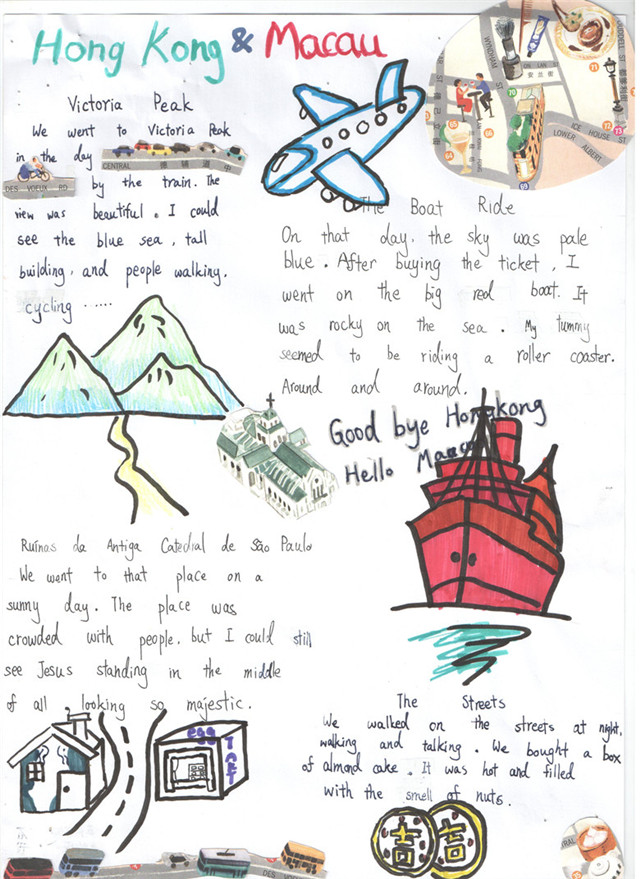 Hong Kong & Macau
Victoria Peak
We went to Victoria Peak
in the day
CENTRAL 德輔道中
DES VOEUX RD
by the train. The
view was beautiful. I could
see the blue sea, tall
building, and people walking,
cycling ......
WYNDHAM ST
ON LAN ST
安蘭街
ICE HOUSE ST
LOWER ALBERT
The Boat Ride
On that day, the sky was pale
blue. After buying the ticket, I
went on the big red boat. It
was rocky on the sea. My tummy
seemed to be riding a roller coaster.
Around and around.
Good bye Hongkong
Hello Macau
Ruínas da Antiga Catedral de São Paulo
We went to that place on a
sunny day. The place was
crowded with people, but I could still
see Jesus standing in the middle
of all looking so majestic.
egg
TART
The Streets
We walked on the streets at night,
walking and talking. We bought a box
of almond cake. It was hot and filled
with the smell of nuts.
吉 吉
DES VOEUX